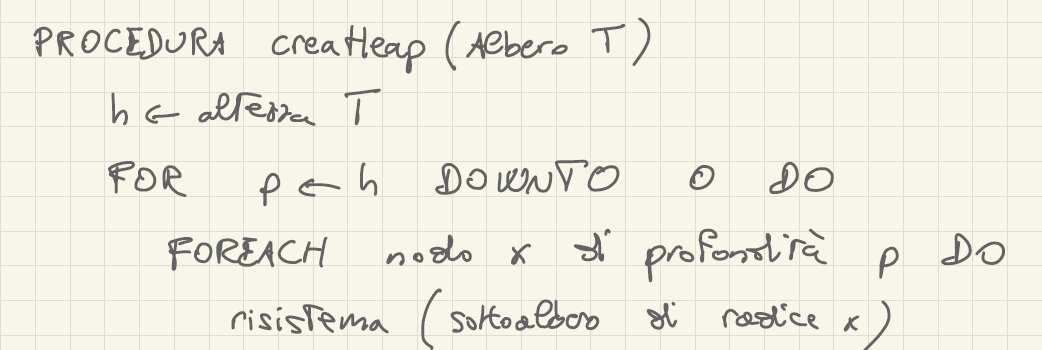 PROCEDURA creaHeap (Albero T)
h ← altezza T
FOR p ← h DOWNTO 0 DO
FOREACH nodo x di profondità p DO
risistema (sottoalbero di radice x)